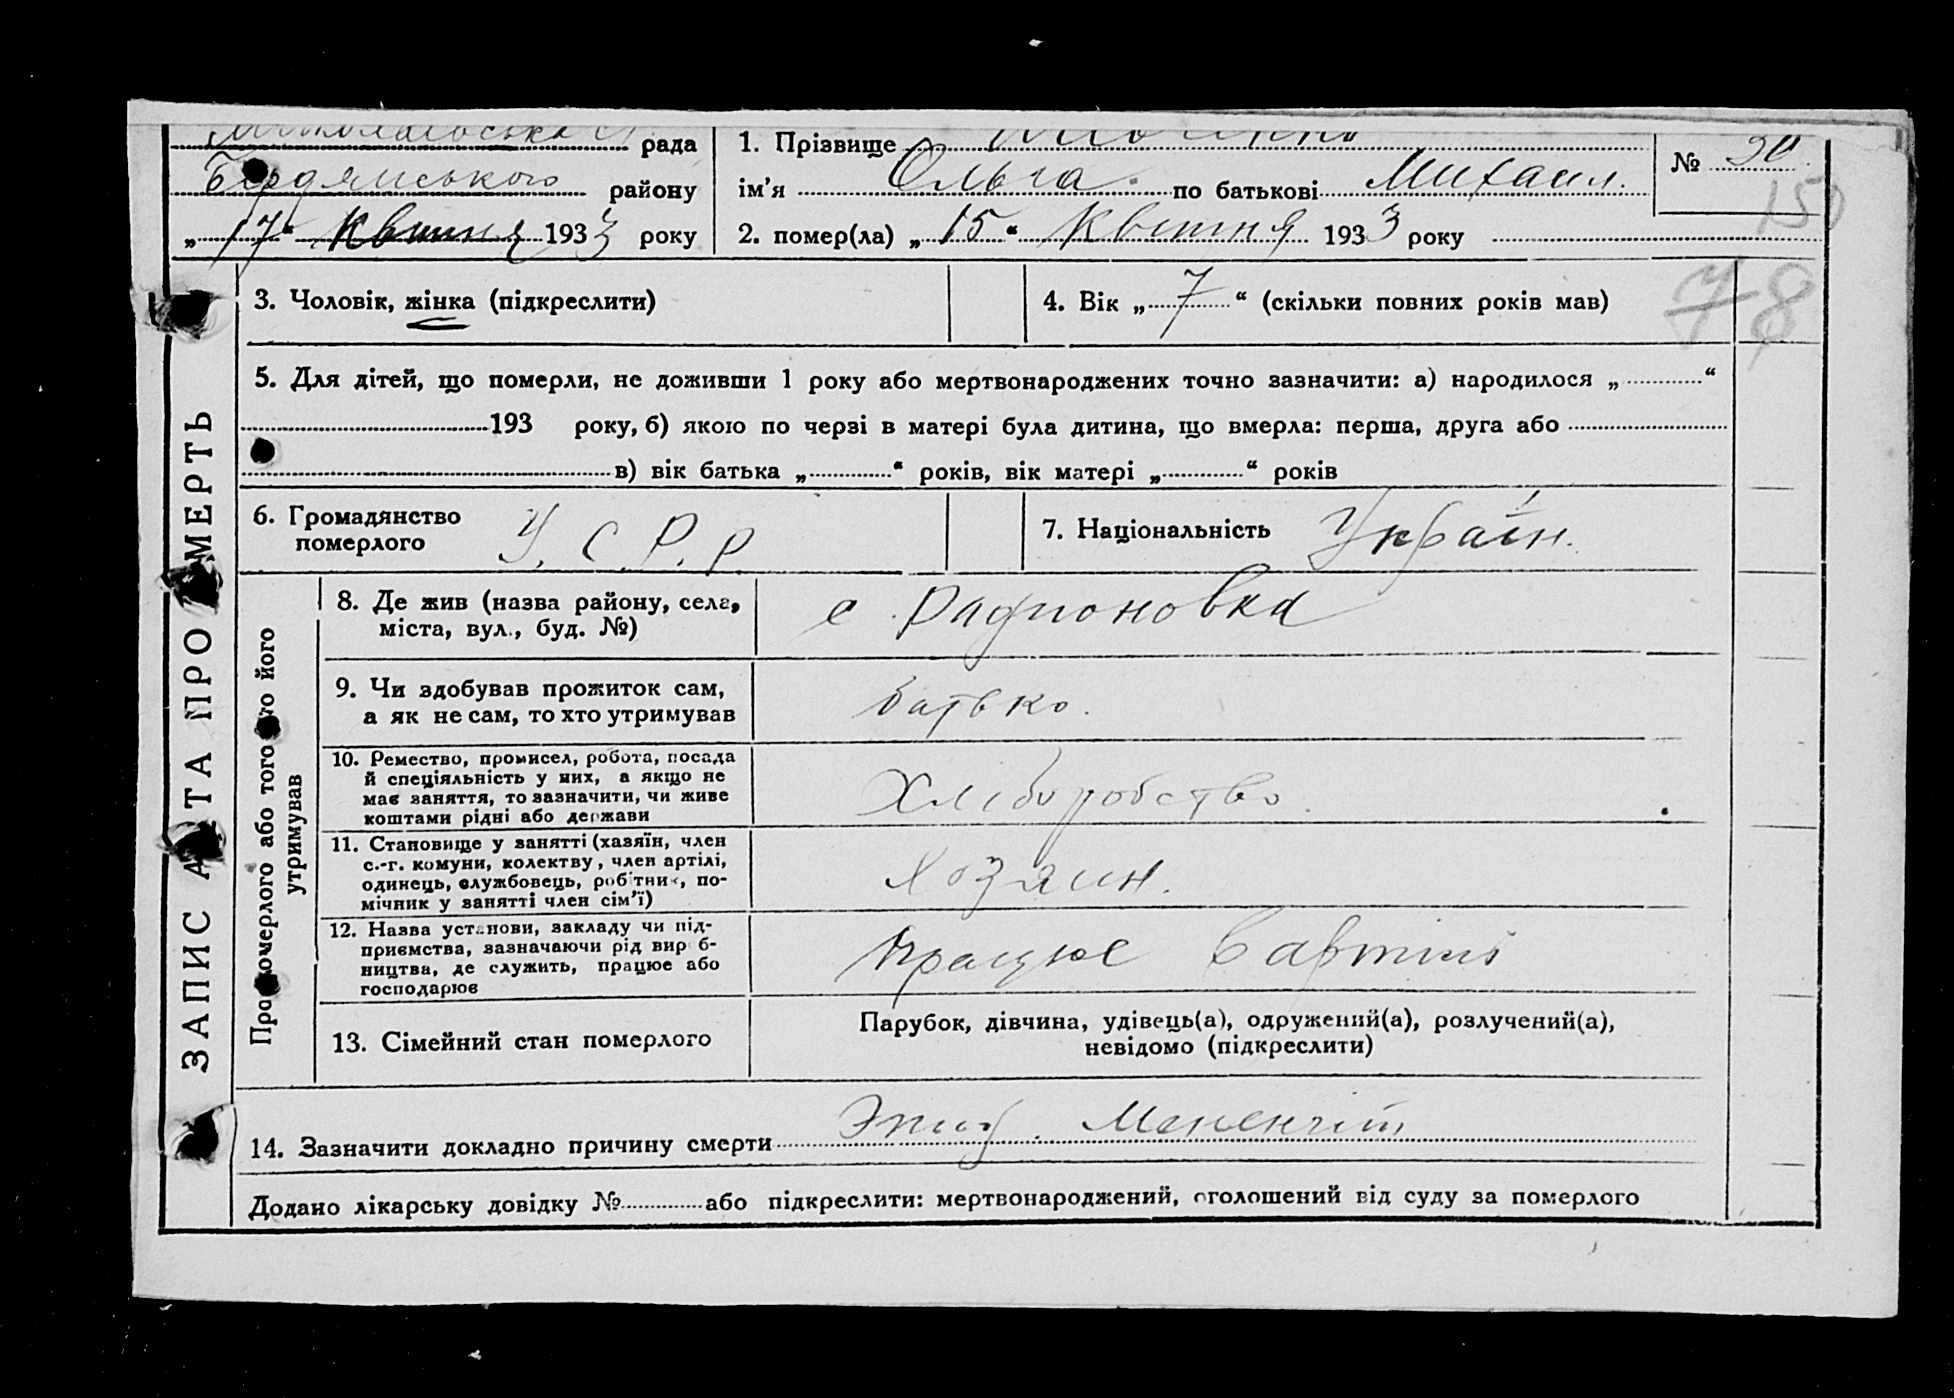 рада
1. Прізвище
№ 90
Бердянського району
ім'я Ольга по батькові Михаил.
150
„17“ квитня 1933 року
2. помер(ла) „15“ Квитня 1933 року
3. Чоловік, жінка (підкреслити)
4. Вік „7“ (скільки повних років мав)
78
5. Для дітей, що померли, не доживши 1 року або мертвонароджених точно зазначити: а) народилося „ “
193 року, б) якою по черзі в матері була дитина, що вмерла: перша, друга або
в) вік батька „ “ років, вік матері „ “ років
6. Громадянство
померлого
У. С. Р. Р.
7. Національність Украін.
ЗАПИС АКТА ПРО СМЕРТЬ
Про померлого або того хто його
утримував
8. Де жив (назва району, села,
міста, вул., буд. №)
с. Радионовка
9. Чи здобував прожиток сам,
а як не сам, то хто утримував
батько.
10. Ремество, промисел, робота, посада
й спеціяльність у них, а якщо не
має заняття, то зазначити, чи живе
коштами рідні або держави
Хліборобство.
11. Становище у занятті (хазяїн, член
с.-г. комуни, колективу, член артілі,
одинець, службовець, робітник, по-
мічник у занятті член сім'ї)
Хозяин.
12. Назва установи, закладу чи під-
приємства, зазначаючи рід вироб-
ництва, де служить, працює або
господарює
працює в артілі
13. Сімейний стан померлого
Парубок, дівчина, удівець(а), одружений(а), розлучений(а),
невідомо (підкреслити)
14. Зазначити докладно причину смерти Эпид. Мененгіт
Додано лікарську довідку № або підкреслити: мертвонароджений, оголошений від суду за померлого